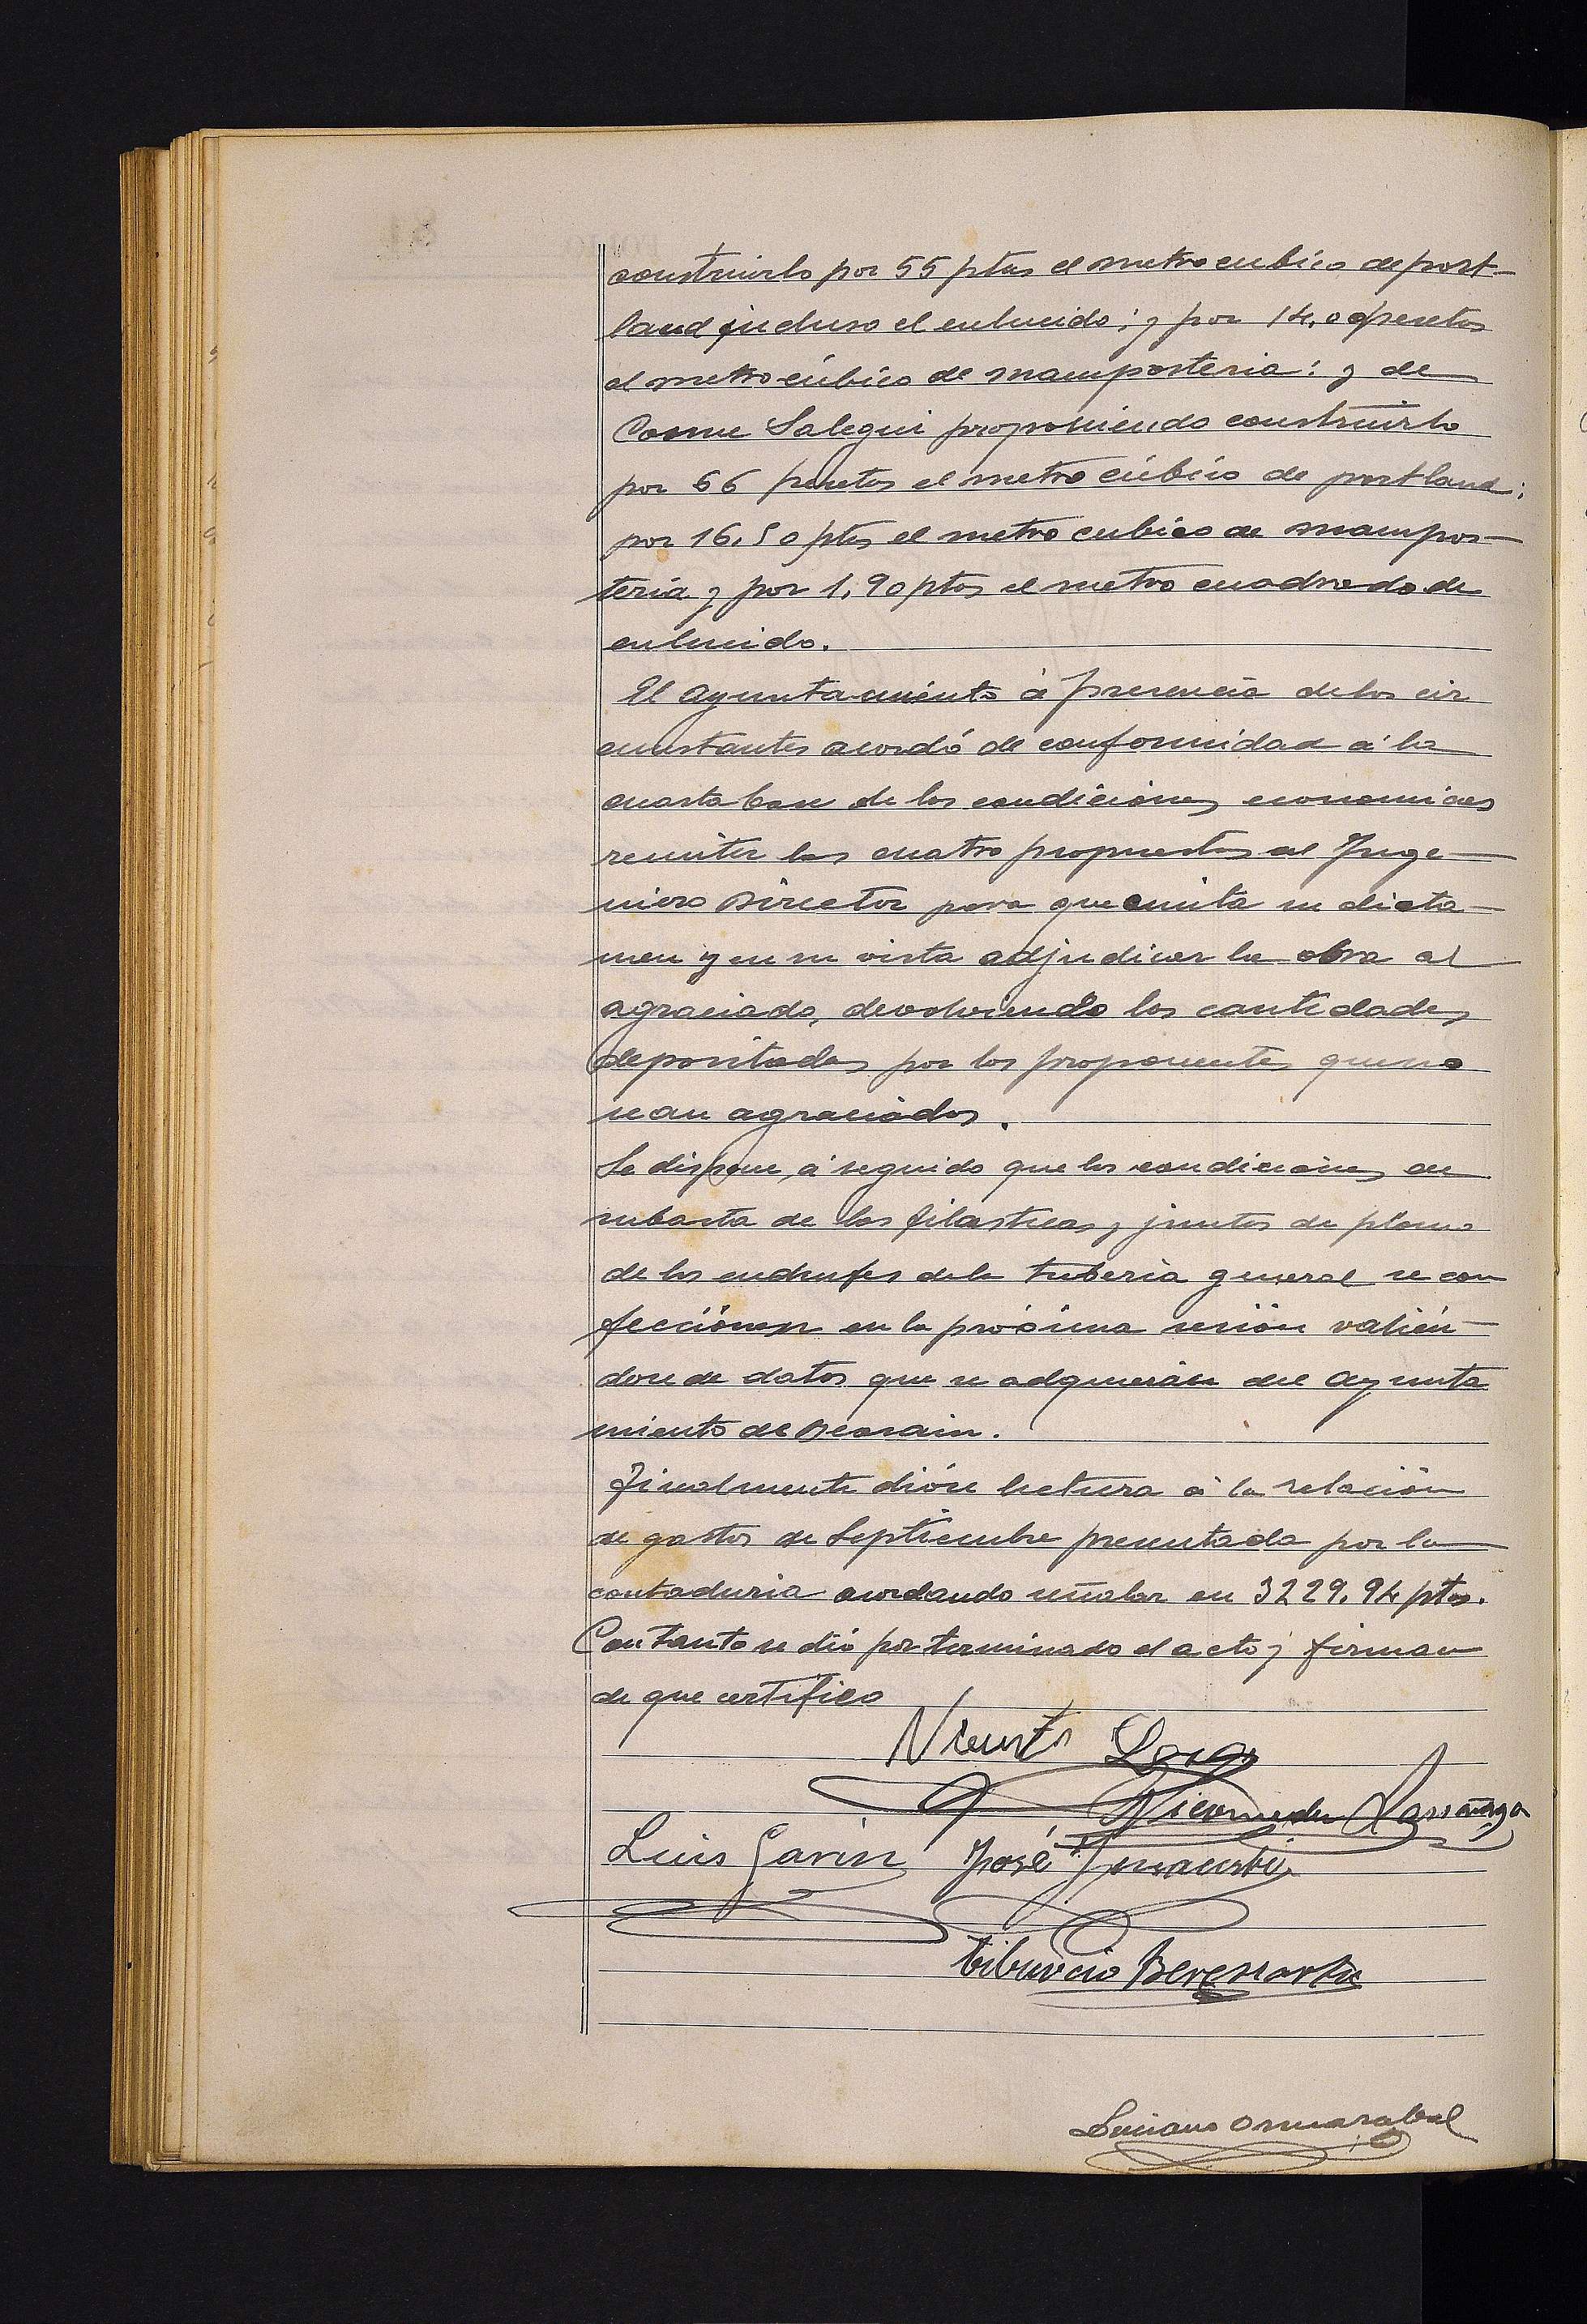 construirlo por 55 ptas el metro cubico de port-
land incluso el enlucido; y por 14,00 pesetas
el metro cúbico de mamposteria: y de
Cosme Salegui proponiendo construirlo
por 66 pesetas el metro cúbico de portland;
por 16,50 ptas el metro cubico de mampos-
teria y por 1,90 ptas el metro cuadrado de
enlucido.
El Ayuntamiento á presencia de los cir
cunstantes acordó de conformidad á la
cuarta base de las condiciones economicas
remitir las cuatro propuestas al Inge-
niero Director para que emita su dicta-
men y en su vista adjudicar la obra al
agraciado, devolviendo las cantidades
depositadas por los proponentes que no
sean agraciados.
Se dispone á seguido que las condiciones de
subasta de las filasticas y juntas de plomo
de los enchufes de la tuberia general se con
feccionen en la próxima sesión valién-
dose de datos que se adquirirán del Ayunta
miento de Beasain.
Finalmente dióse lectura á la relación
de gastos de Septiembre presentada por la
contaduria acordando señalar en 3229.94 ptas.
Con tanto se dió por terminado el acto y firman
de que certifico
Vicente
Nicomedes Larrañaga
Luis Garin José
Tiburcio Berenartu
Luciano Ormazabal